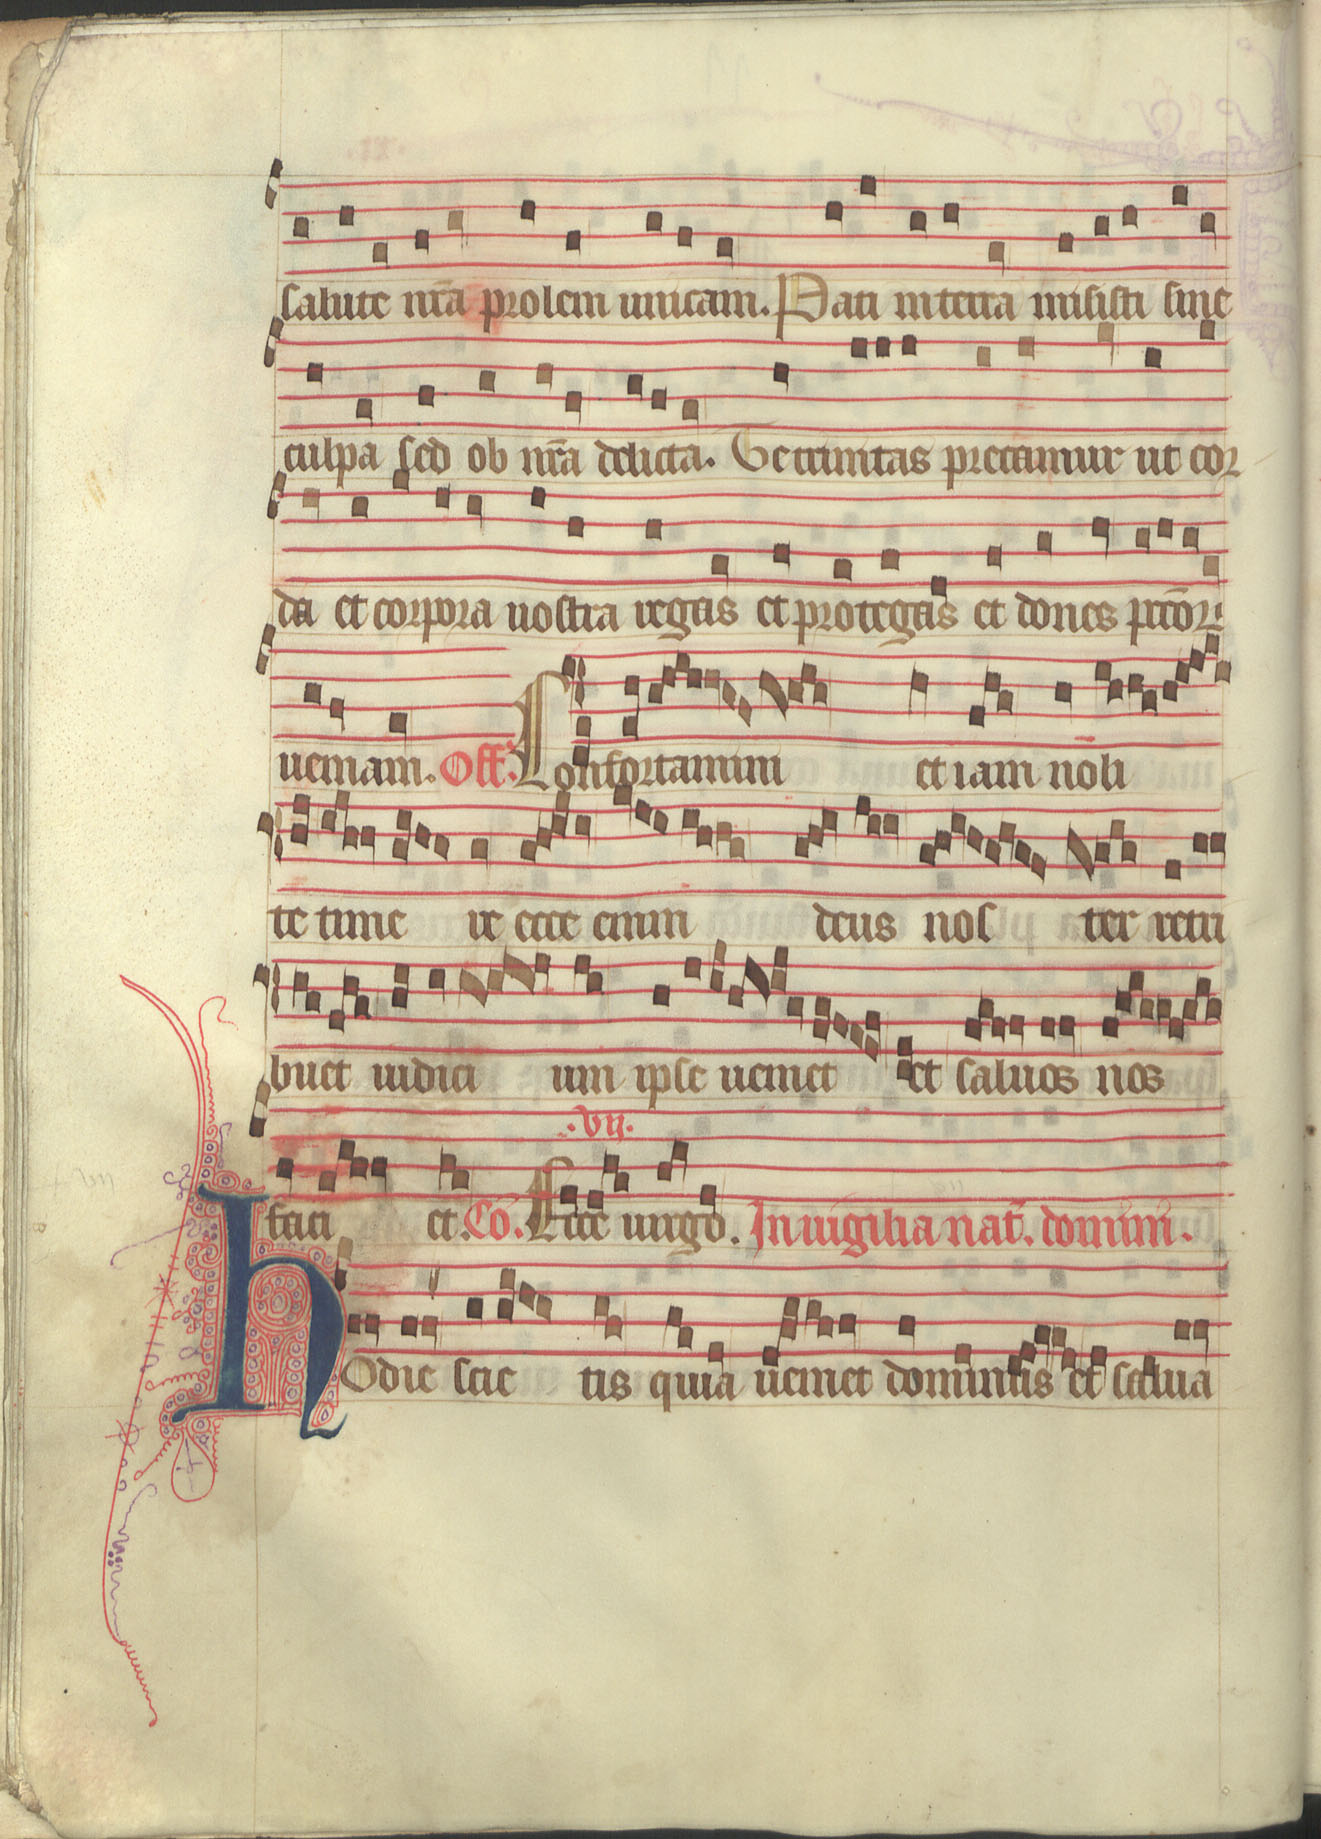 salute nr̄a prolem unicam. Pati in terra misisti sine
culpa sed ob nr̄a delicta. Te trinitas precamur ut cor
da et corpora nostra regas et protegas et dones pctōꝝ
ueniam. Off. Confortamini et iam noli
te time re ecce enim deus nos ter retri
buet iudici um ipse ueniet et saluos nos
.vij.
faci et. Cō. Ecce uirgo. In uigilia nat̄. domini.
Hodie scie tis quia ueniet dominus et salua